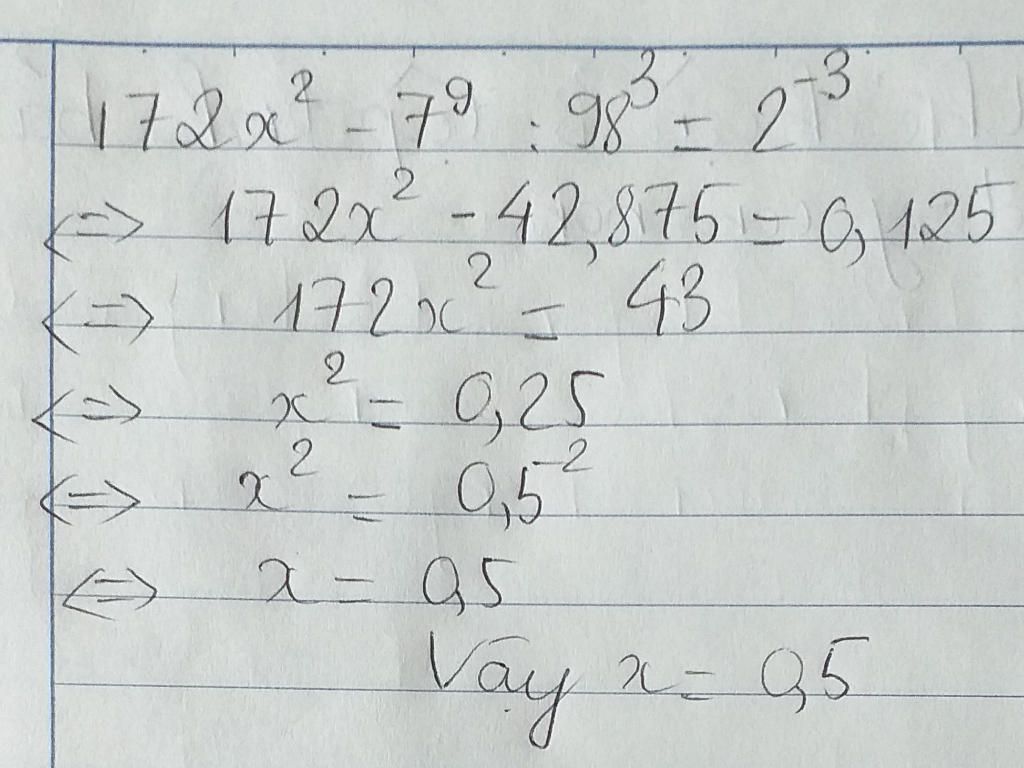 172x² - 7⁹ : 98³ = 2⁻³
<=> 172x² - 42,875 = 0,125
<=> 172x² = 43
<=> x² = 0,25
<=> x² = 0,5²
<=> x = 0,5
Vậy x = 0,5